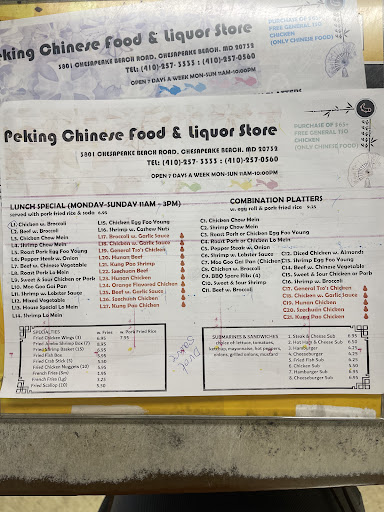 Peking Chinese Food & Liquor Store
PURCHASE OF $65+
FREE GENERAL TSO
CHICKEN
(ONLY CHINESE FOOD)
5801 CHESAPEAKE BEACH ROAD, CHESAPEAKE BEACH, MD 20732
TEL: (410)-257-3333 ; (410)-257-0560
OPEN 7 DAYS A WEEK MON-SUN 11AM-10:00PM
Peking Chinese Food & Liquor Store
PURCHASE OF $65+
FREE GENERAL TSO
CHICKEN
(ONLY CHINESE FOOD)
5801 CHESAPEAKE BEACH ROAD, CHESAPEAKE BEACH, MD 20732
TEL: (410)-257-3333 ; (410)-257-0560
OPEN 7 DAYS A WEEK MON-SUN 11AM-10:00PM
LUNCH SPECIAL (MONDAY-SUNDAY 11AM - 3PM)
served with pork fried rice & soda
L1. Chicken w. Broccoli
L2. Beef w. Broccoli
L3. Chicken Chow Mein
L4. Shrimp Chow Mein
L5. Roast Pork Egg Foo Young
L6. Pepper Steak w. Onion
L7. Beef w. Chinese Vegetable
L8. Roast Pork Lo Mein
L9. Sweet & Sour Chicken or Pork
L10. Moo Goo Gai Pan
L11. Shrimp w. Lobster Sauce
L12. Mixed Vegetable
L13. House Special Lo Mein
L14. Shrimp Lo Mein
L15. Chicken Egg Foo Young
L16. Shrimp w. Cashew Nuts
L17. Broccoli w. Garlic Sauce
L18. Chicken w. Garlic Sauce
L19. General Tso's Chicken
L20. Hunan Beef
L21. Kung Pao Shrimp
L22. Szechuan Beef
L23. Hunan Chicken
L24. Orange Flavored Chicken
L25. Beef w. Garlic Sauce
L26. Szechuan Chicken
L27. Kung Pao Chicken
COMBINATION PLATTERS
w. egg roll & pork fried rice
C1. Chicken Chow Mein
C2. Shrimp Chow Mein
C3. Roast Pork or Chicken Egg Foo Young
C4. Roast Pork or Chicken Lo Mein
C5. Pepper Steak w. Onion
C6. Shrimp w. Lobster Sauce
C7. Moo Goo Gai Pan
C8. Chicken w. Broccoli
C9. BBQ Spare Ribs (4)
C10. Sweet & Sour Shrimp
C11. Beef w. Broccoli
C12. Diced Chicken w. Almonds
C13. Shrimp w. Chinese Vegetable
C14. Beef w. Chinese Vegetable
C15. Sweet & Sour Chicken or Pork
C16. Shrimp w. Broccoli
C17. General Tso's Chicken
C18. Chicken w. Garlic Sauce
C19. Hunan Chicken
C20. Szechuan Chicken
C21. Kung Pao Chicken
SPECIALTIES
w. Fries
w. Pork Fried Rice
Fried Chicken Wings (3) 6.95 7.95
Fried Jumbo Shrimp Box (7)
Fried Shrimp Basket (15)
Fried Fish Box
Fried Crab Stick (5)
Fried Chicken Nuggets (10)
French Fries (Sm)
French Fries (Lg)
Fried Scallop (10)
SUBMARINES & SANDWICHES
Choice of lettuce, tomatoes,
ketchup, mayonnaise, hot peppers,
onions, grilled onions, mustard
1. Steak & Cheese Sub
2. Hot Ham & Cheese Sub
3. Hamburger
4. Cheeseburger
5. Fried Fish Sub
6. Chicken Sub
7. Hamburger Sub
8. Cheeseburger Sub